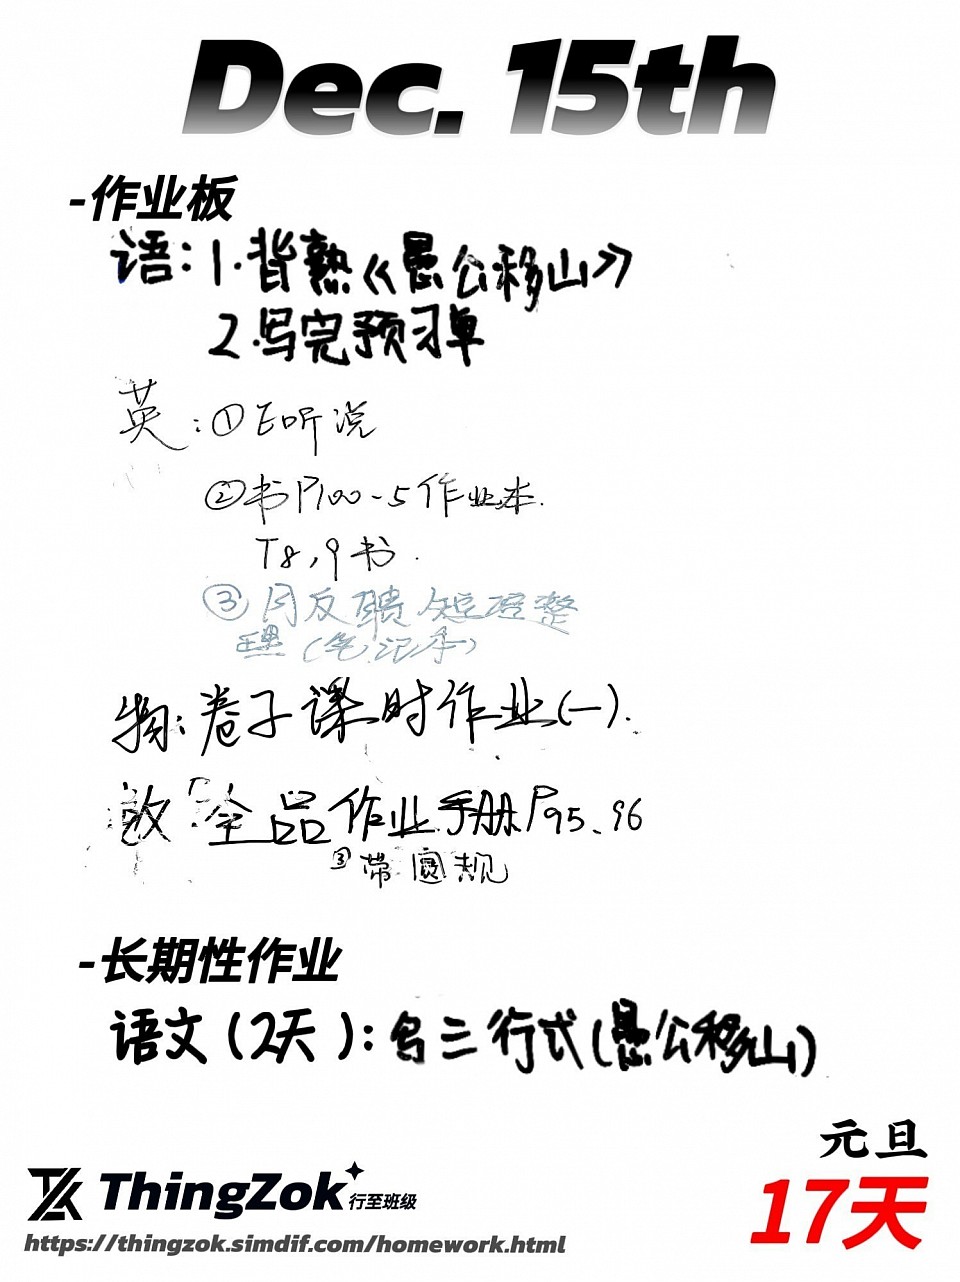 Dec. 15th
-作业板
语:1.背熟《愚公移山》
2.写完预习单
英:①E听说
②书P100-5作业本.
T8,9书.
③月反馈短语整
理(笔记本)
物:卷子课时作业(一).
数 全品作业手册P95、96
③带圆规
-长期性作业
语文(2天):名三行式(愚公移山)
元旦
17天
ThingZok 行至班级
https://thingzok.simdif.com/homework.html